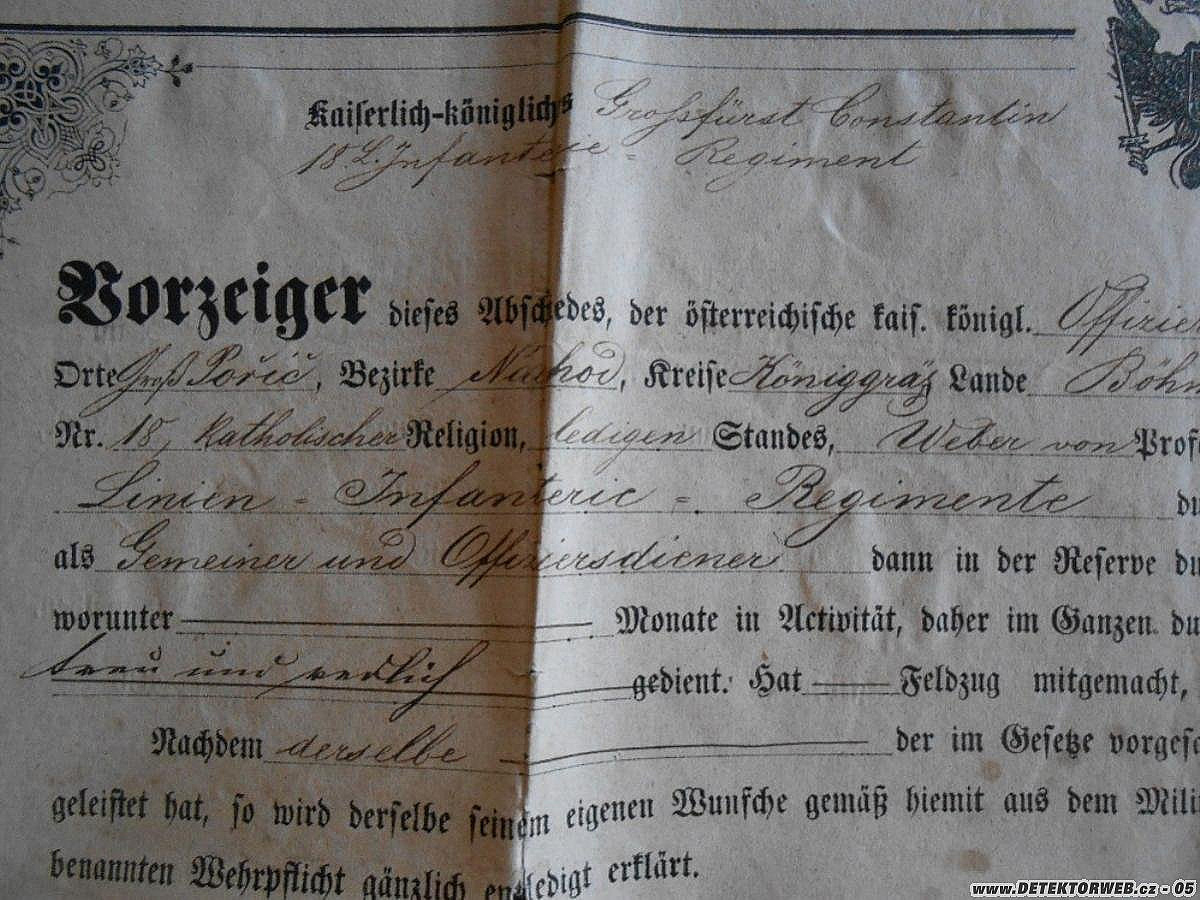 Kaiserlich-königlichs Großfürst Constantin
18 L. Infanterie - Regiment
Vorzeiger dieses Abschiedes, der österreichische kais. königl. Offizie
Orte Groß Pořič, Bezirke Náchod, Kreise Königgrätz Lande Böhm
Nr. 18, katholischer Religion, ledigen Standes, Weber von Profe
Linien - Infanterie - Regimente du
als Gemeiner und Offiziersdiener dann in der Reserve du
worunter Monate in Activität, daher im Ganzen du
treu und redlich gedient. Hat Feldzug mitgemacht,
Nachdem derselbe der im Gesetze vorgesc
geleistet hat, so wird derselbe seinem eigenen Wunsche gemäß hiemit aus dem Mili
benannten Wehrpflicht gänzlich entledigt erklärt.
www.DETEKTORWEB.cz - 05